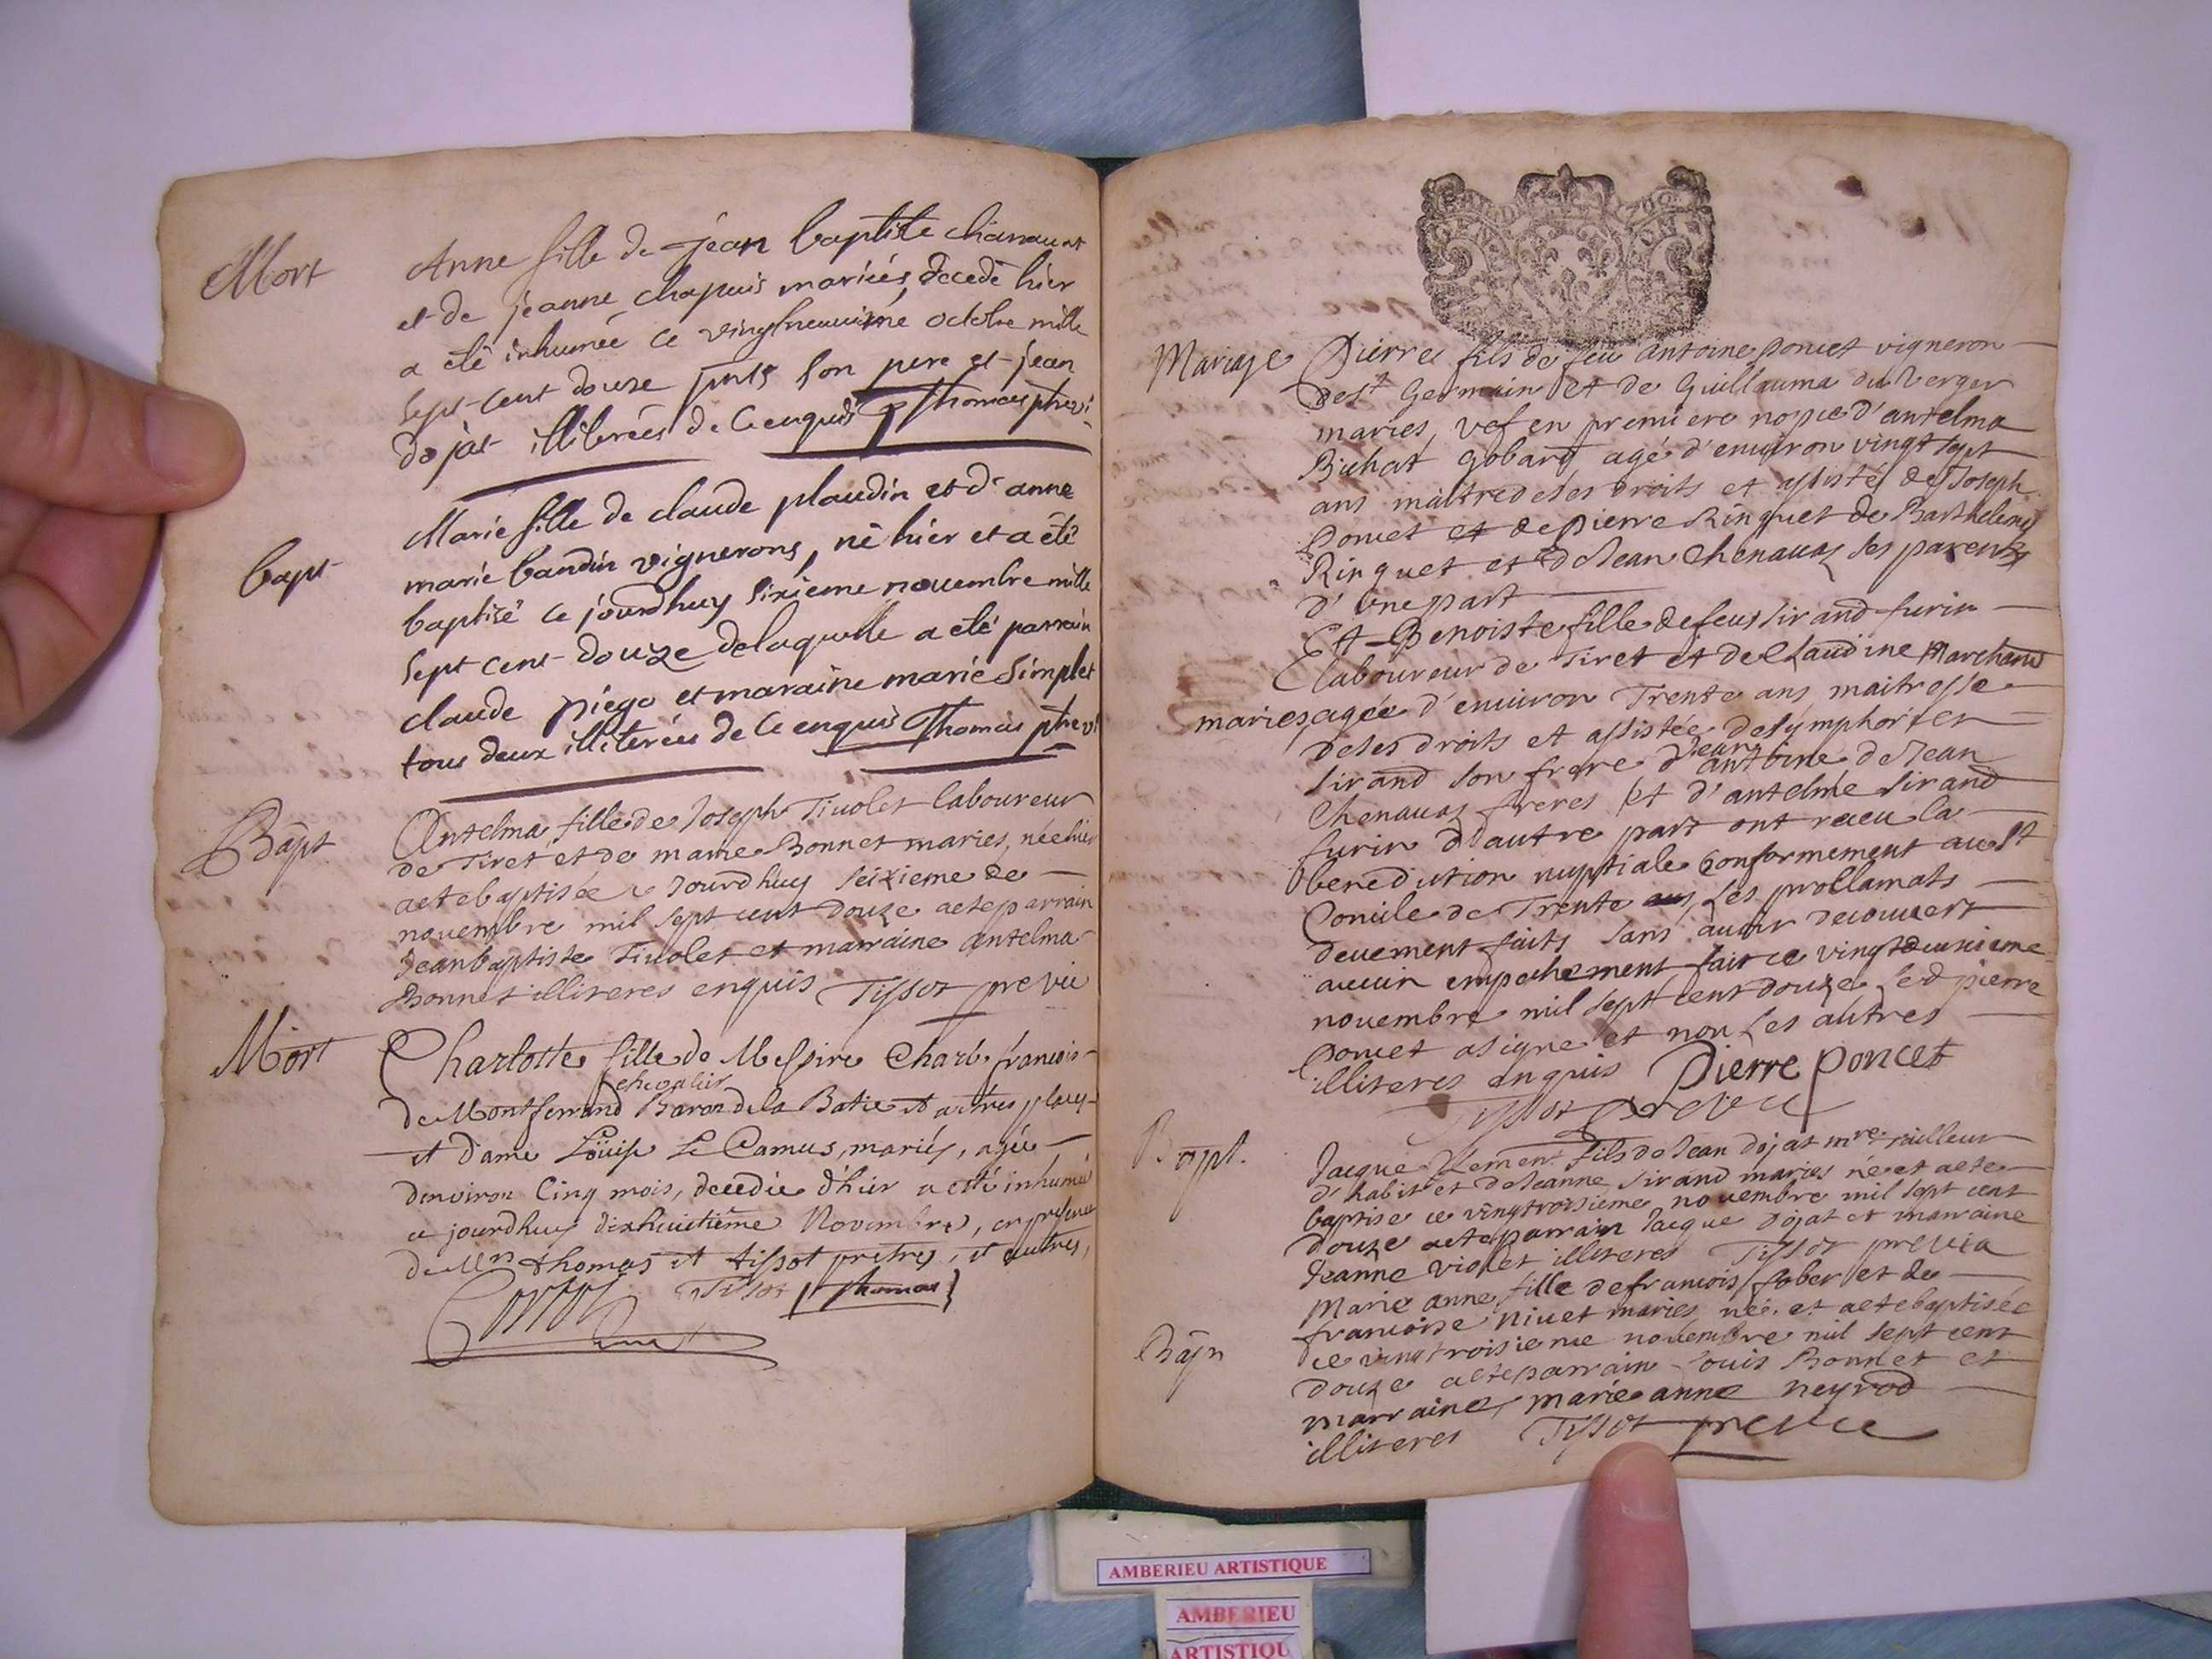 Mort
Anne fille de jean baptiste chanauat
et de jeanne chapuis mariés, decedé hier
a été inhumée ce vingtneuuiéme octobre mille
sept cent douze pnts son pere et jean
dojat illiterées de ce enquis Thomas ptre vi
bapt
Marie fille de claude plaudin et d'anne
marie baudin vignerons, né hier et a été
baptisé ce jourdhuy sixiéme nouembre mille
sept cent douze delaquelle a été parrain
claude piégo et maraine marie simplet
tous deux illiterées de ce enquis Thomas ptre vi
Bapt
Antelma fille de Joseph Tiuolet laboureur
de Tiret et de marie Bonnet maries, née hier
aete baptisée ce Jourdhuy seizieme de
nouembre mil sept cent douze aete parrain
Jean baptiste Tiuolet et marraine antelma
Bonnet illiteres enquis Tissot pre vic
Mort
Charlotte fille de Messire Charl. francois
chevalier
de Montferrand Baron de la Batie et autres places
et dame Loüise Le Camus, mariés, agée
denviron cinq mois, decedée d'hier a esté inhumée
ce jourdhuy dixhuictiême Novembre, en presence
de Mrs thomas et tissot pretres, et autres,
Tissot Thomas
Mariage
Pierre fils de feu antoine poncet vigneron
de st Germain et de Guillauma du Verger
maries, vef en premiere nopce d'antelma
Bichat Gobard, agé d'enuiron vingt sept
ans maitre de ses droits et assisté de Joseph
Poncet et de pierre Ringuet de Barthelemy
Ringuet et de Jean Chenauaz ses parents
d'une part
Et Benoiste fille de feu sirand furin
laboureur de Tiret et de Claudine Marchand
maries agée d'enuiron Trente ans maitresse
de ses droits et assistée de symphorien
sirand son frere d'antoine de Jean
Jean
Chenauaz freres et d'antelme sirand
furin d'autre part ont receu la
benediction nuptiale conformement au st
Concile de Trente les proclamats
deuement faits sans auoir decouuert
aucun empechement fait ce vingtdeuxieme
nouembre mil sept cent douze led pierre
Poncet a signé et non les autres
illiteres enquis Pierre poncet
Tissot pre vic
Bapt.
Jacque Clement fils de Jean dojat mre tailleur
d'habit et de Jeanne sirand maries né et aete
baptise ce vingtroisieme nouembre mil sept cent
douze aete parrain Jacque dojat et marraine
Jeanne violet illiteres Tissot pre vic
Bapt
Marie anne fille de francois faber et de
francoise niuet maries née et aete baptisée
ce vingtroisieme nouembre mil sept cent
douze aete parrain louis Bonnet et
marraine marie anne neyrod
illiteres Tissot pre vic
AMBERIEU ARTISTIQUE
AMBERIEU
ARTISTIQU